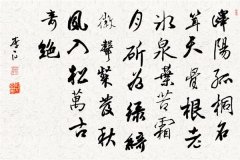 嶧陽孤桐石
聳天骨根老
冰泉葉苦霜
月斫為綠綺
徽聲粲發秋
風入松萬古
奇絕